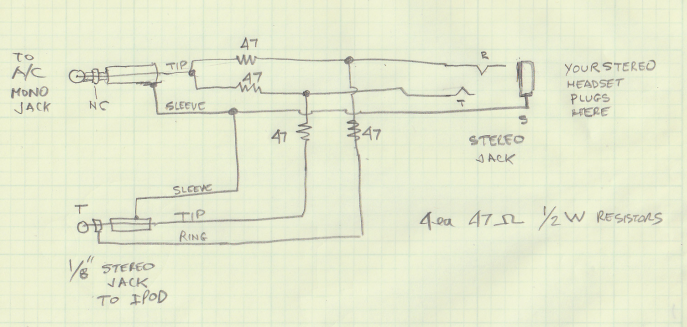 TO
A/C
MONO
JACK
NC
TIP
47
47
SLEEVE
47
47
R
T
S
STEREO
JACK
YOUR STEREO
HEADSET
PLUGS
HERE
SLEEVE
T
TIP
RING
1/8" STEREO
JACK
TO IPOD
4 ea 47 Ω 1/2 W RESISTORS